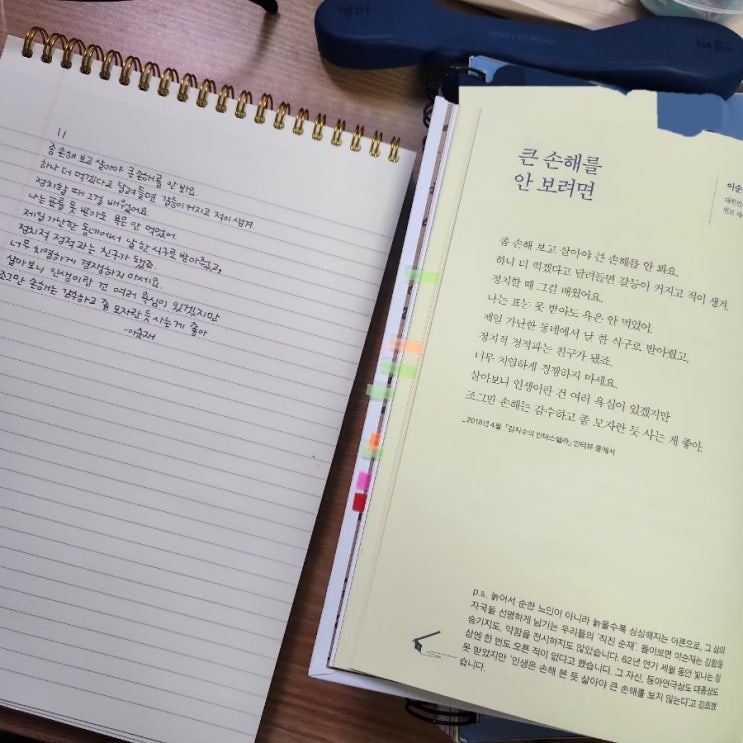 11
좀 손해 보고 살아야 큰 손해를 안 봐요
하나 더 먹겠다고 달려들면 갈등이 커지고 적이 생겨
정치할 때 그걸 배웠어요
나는 표는 못 받아도 욕은 안 먹었어.
제일 가난한 동네에서 날 한 식구로 받아줬고,
정치적 정적과는 친구가 됐죠.
너무 치열하게 경쟁하지 마세요.
살아보니 인생이란 건 여러 욕심이 있겠지만
조그만 손해는 감수하고 좀 모자란 듯 사는게 좋아
-이순재
BORN TO READ
큰 손해를
안 보려면
이순
대한민
좀 손해 보고 살아야 큰 손해를 안 봐요.
하나 더 먹겠다고 달려들면 갈등이 커지고 적이 생겨.
정치할 때 그걸 배웠어요.
나는 표는 못 받아도 욕은 안 먹었어.
제일 가난한 동네에서 날 한 식구로 받아줬고,
정치적 정적과는 친구가 됐죠.
너무 치열하게 경쟁하지 마세요.
살아보니 인생이란 건 여러 욕심이 있겠지만
조그만 손해는 감수하고 좀 모자란 듯 사는 게 좋아.
_2018년 4월 「김지수의 인터스텔라」 인터뷰 중에서
p.s. 늙어서 순한 노인이 아니라 늙을수록 싱싱해지는 어른으로, 그 삶의
자국을 선명하게 남기는 우리들의 '직진 순재'. 돌아보면 이순재는 강함을
숨기지도, 약함을 전시하지도 않았습니다. 62년 연기 세월 동안 빛나는 정
상엔 한 번도 오른 적이 없다고 했습니다. 그 자신, 동아연극상도 대종상도
못 받았지만 '인생은 손해 본 듯 살아야 큰 손해를 보지 않는다'고 강조했
습니다.